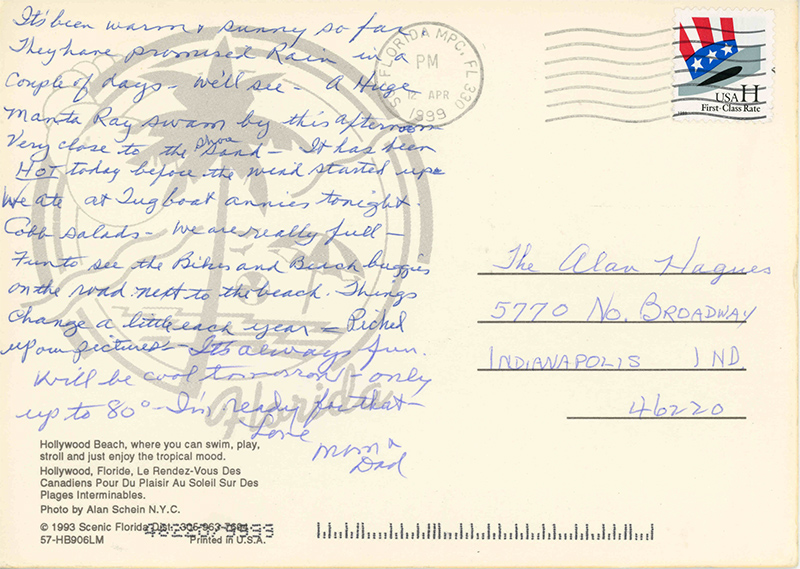 It's been warm & sunny so far
They have promised Rain in a
Couple of days - We'll see - A Huge
Manta Ray swam by this afternoon
Very close to the shore
Sand - It has been
HOT today before the wind started up -
We ate at Tugboat annies tonight.
Cobb salads - We are really full -
Fun to see the Bikes and Beach buggies
on the road next to the beach. Things
Change a little each year - Picked
up our pictures - It's always fun.
Will be cool tomorrow - only
up to 80° - I'm ready for that -
Love
Mom &
Dad
Hollywood Beach, where you can swim, play,
stroll and just enjoy the tropical mood.
Hollywood, Floride, Le Rendez-Vous Des
Canadiens Pour Du Plaisir Au Soleil Sur Des
Plages Interminables.
Photo by Alan Schein N.Y.C.
© 1993 Scenic Florida Dist. 305-963-7604
57-HB906LM Printed in U.S.A.
Florida
S. FLORIDA MPC, FL 330
PM
12 APR
1999
USA H
First-Class Rate
The Alan Hagues
5770 No. BROADWAY
INDIANAPOLIS IND
46220